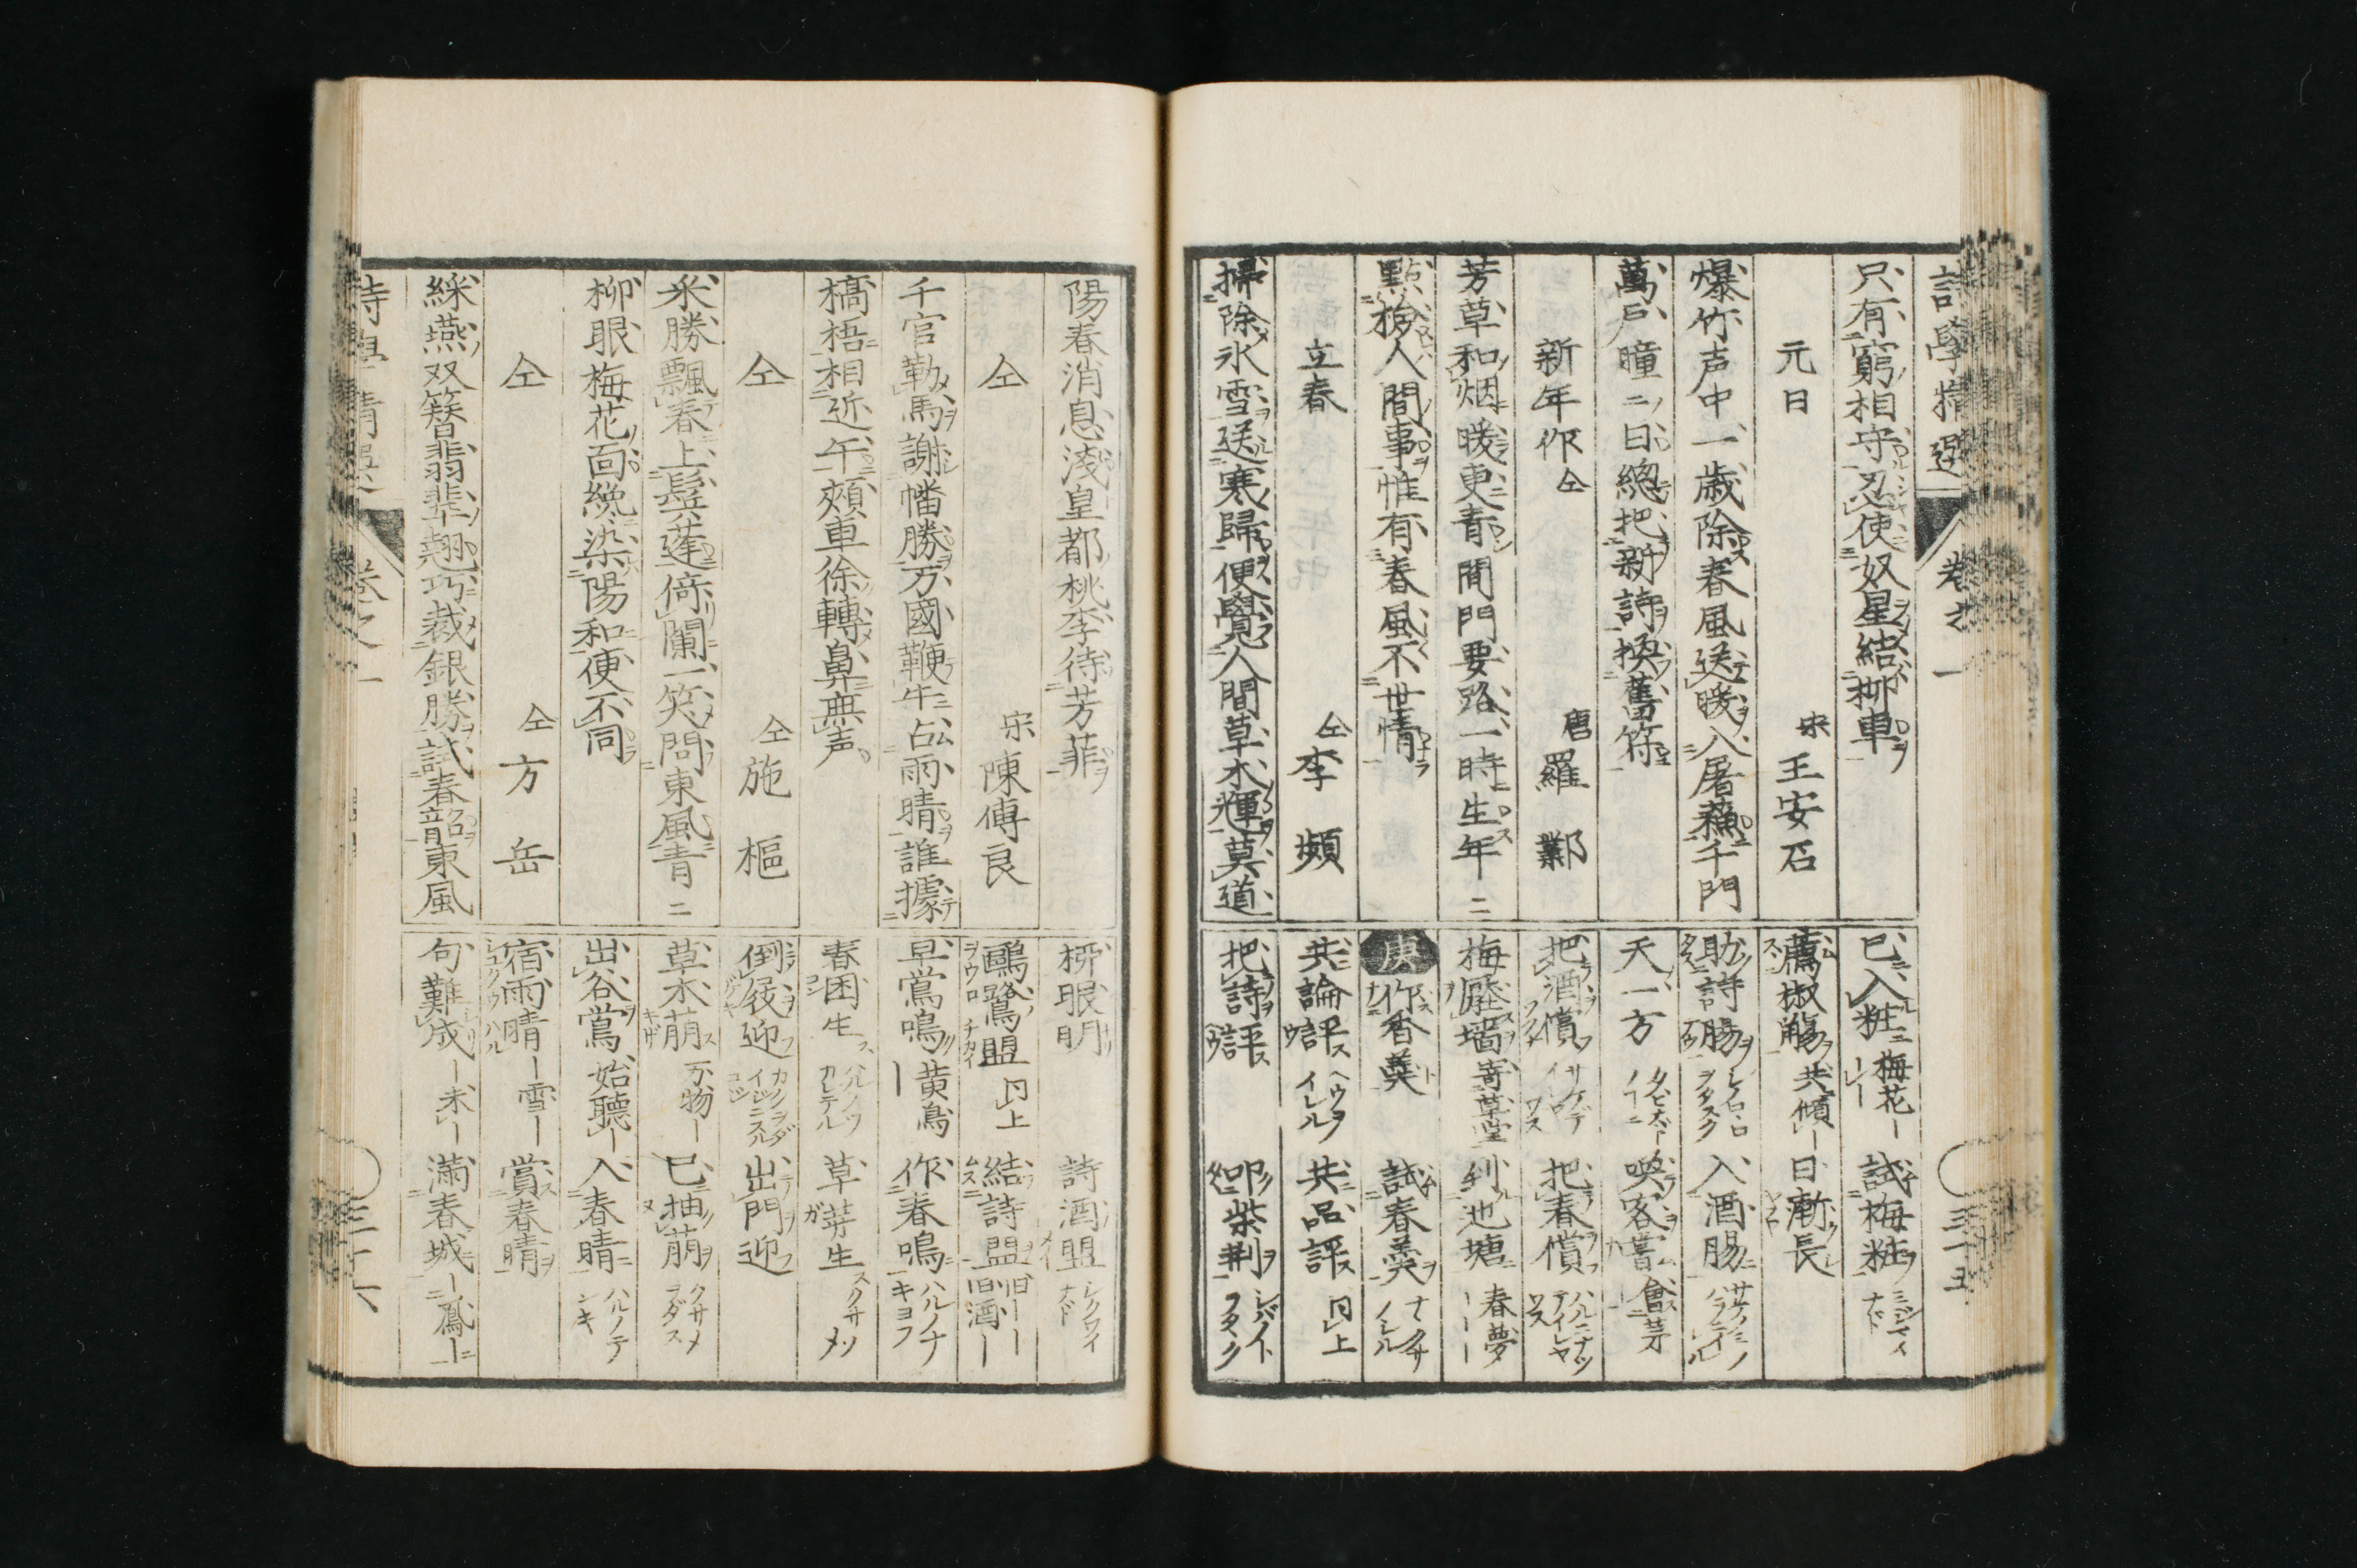 詩學精選 卷之一 三十五
只有窮相守忍使奴星結柳車
元日 宋 王安石
爆竹声中一歳除春風送暖入屠蘇千門
萬戸曈〻日總把新詩換舊符
新年作 仝 唐 羅鄴
芳草和烟暖更青閒門要路一時生年〻
點撿人間事惟有春風不世情
立春 仝 李頻
掃除氷雪送寒歸便覺人間草木輝莫道
已入粧 梅花ー 試梅粧
薦椒觴 共傾ー 日漸長
助詩腸 入酒腸
天一方 喚客嘗
把酒償 把春償
梅壓墻 寄草堂 到池塘 春夢ーー
庚 作香羹 試春羹
共論評 共品評 同上
把詩評 叩柴荊
陽春消息淺皇都桃李待芳菲
仝 宋 陳傅良
千官勒馬謝幡勝万國鞭牛占雨晴誰據
槁梧相近午頰車徐轉鼻無声
仝 仝 施樞
釆勝飄春上鬂蓬倚闌一笑問東風青〻
柳眼梅花面纔染陽和便不同
仝 仝 方岳
綵燕双簪翡翠翹巧裁銀勝試春韶東風
柳眼明 詩酒盟
鷗鷺盟 同上 結詩盟 旧ーー 旧酒ー
早鴬鳴 ー黄鳥 作春鳴
春困生 草芽生
倒屐迎 出門迎
草木萠 万物ー 已抽萠
出谷鴬 始聽ー 入春晴
宿雨晴 ー雪ー 賞春晴
句難成 ー未ー 滿春城 ー鳳ー
詩學精選 卷之一 三十六